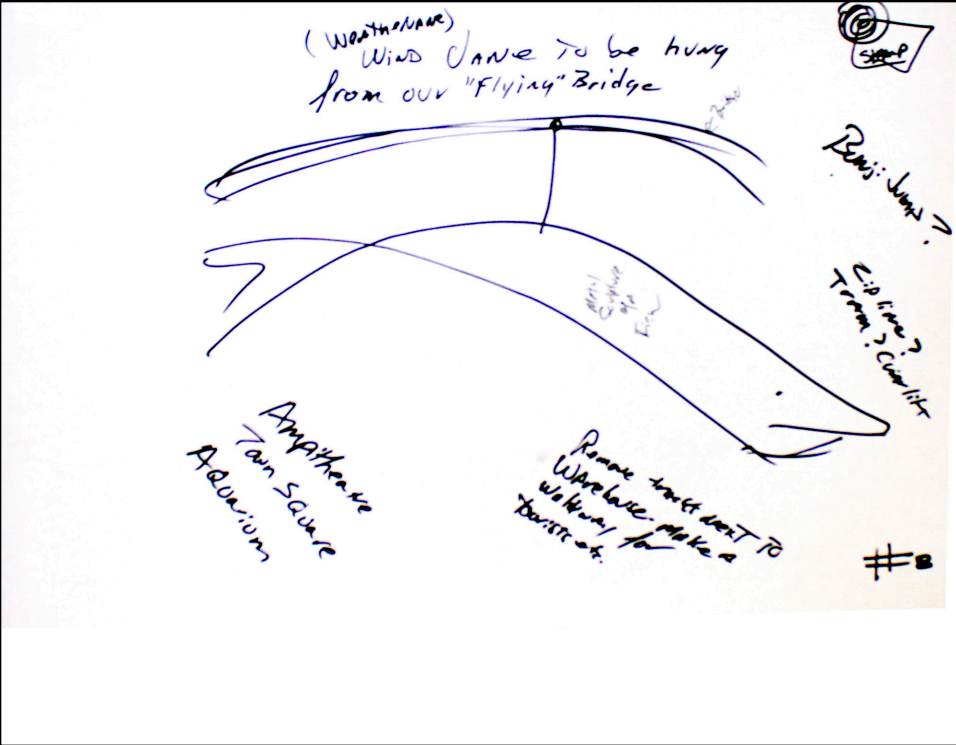 (Weathervane)
Wind Vane To be hung
from our "Flying" Bridge
Bridge
Bunji Jump?
Zip line?
Tram? Chairlift
Metal
Sculpture
of a
Ampitheatre
Town Square
AQUArium
Remove next to
Warehouse. make a
walkway for
tourists etc.
#8